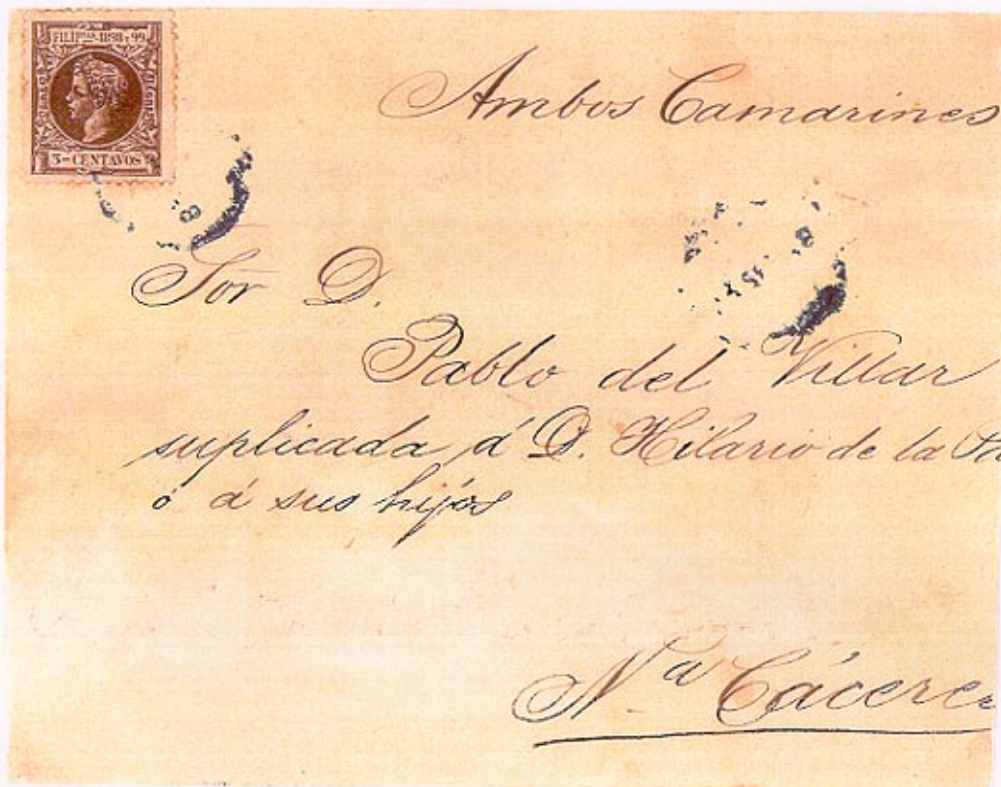 FILIPNAS-1898 y 99
3=CENTAVOS
Ambos Camarines
Sor D.
Pablo del Villar
suplicada á D. Hilario de la
ó á sus hijos
Nª Cácere